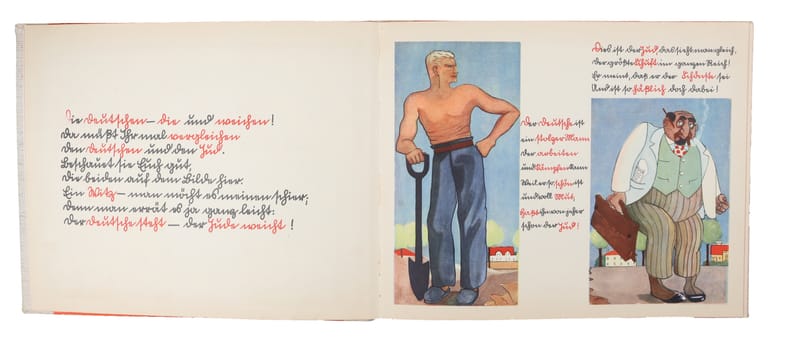 Die Deutschen — die und weichen!
Da müßt Ihr mal vergleichen
Den Deutschen und den Jud.
Beschauet sie Euch gut,
Die beiden auf dem Bilde hier.
Ein Witz — man möcht es meinen schier;
Denn man errät es ja ganz leicht:
Der Deutsche steht — der Jude weicht!
Der Deutsche ist
ein stolzer Mann
Der arbeiten
und kämpfen kann
Weil er so schön ist
und voll Mut,
Haßt ihn von jeher
schon der Jud!
Dies ist der Jud, das sieht man gleich,
Der größte Schuft im ganzen Reich!
Er meint, daß er der Schönste sei
Und ist so häßlich doch dabei!